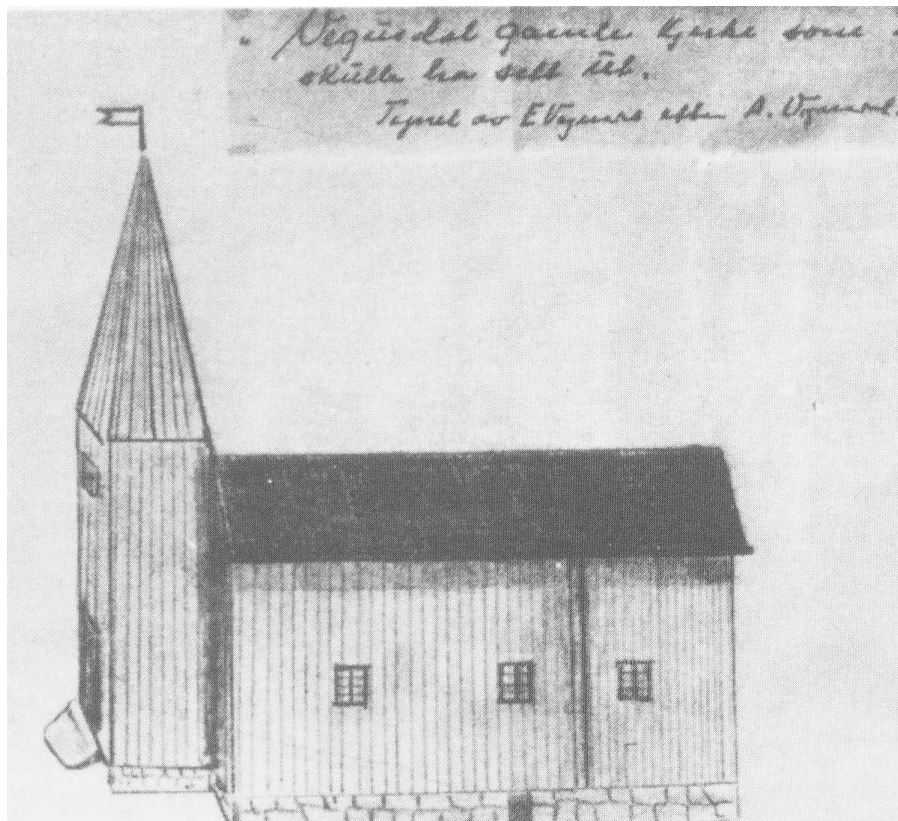 Vegusdal gamle kjerke som
skulle ha sett út.
Tegnet av E Vegusdal etter A. Vegusdal.